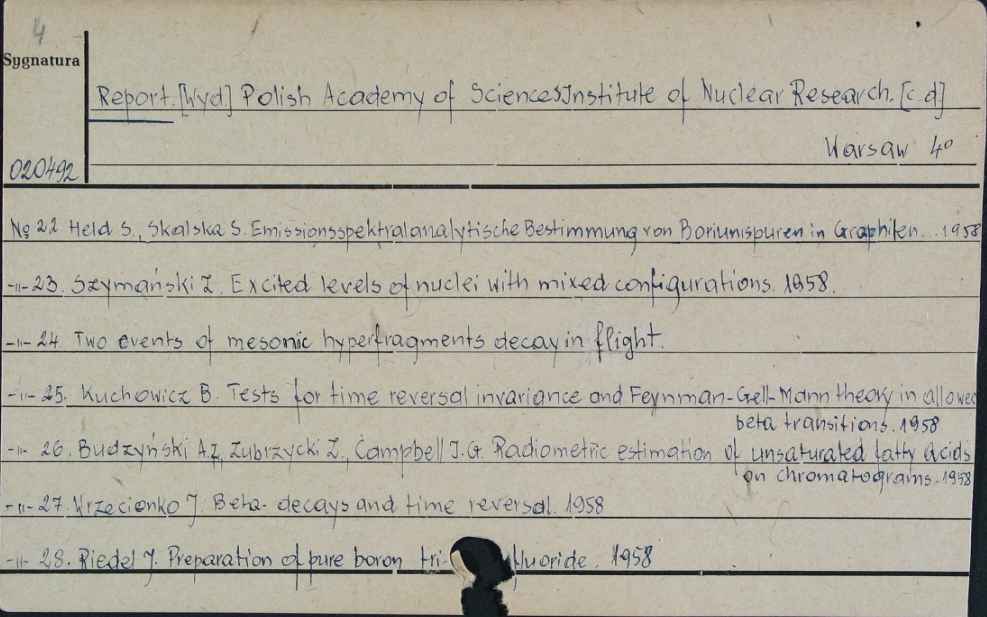 4
Sygnatura
Report. [Wyd] Polish Academy of Sciences Institute of Nuclear Research. [c.d]
Warsaw 4°
020492
№ 22 Held S., Skalska S. Emissionsspektralanalytische Bestimmung von Boriumspuren in Graphiten... 1958
-„- 23. Szymański Z. Excited levels of nuclei with mixed configurations. 1958.
-„- 24. Two events of mesonic hyperfragments decay in flight.
-„- 25. Kuchowicz B. Tests for time reversal invariance and Feynman-Gell-Mann theory in allowed
beta transitions. 1958
-„- 26. Budzyński A.Z, Zubrzycki Z., Campbell J.G. Radiometric estimation of unsaturated fatty acids
on chromatograms. 1958
-„- 27. Wrzecionko J. Beta-decays and time reversal. 1958
-„- 28. Riedel J. Preparation of pure boron tri-fluoride. 1958